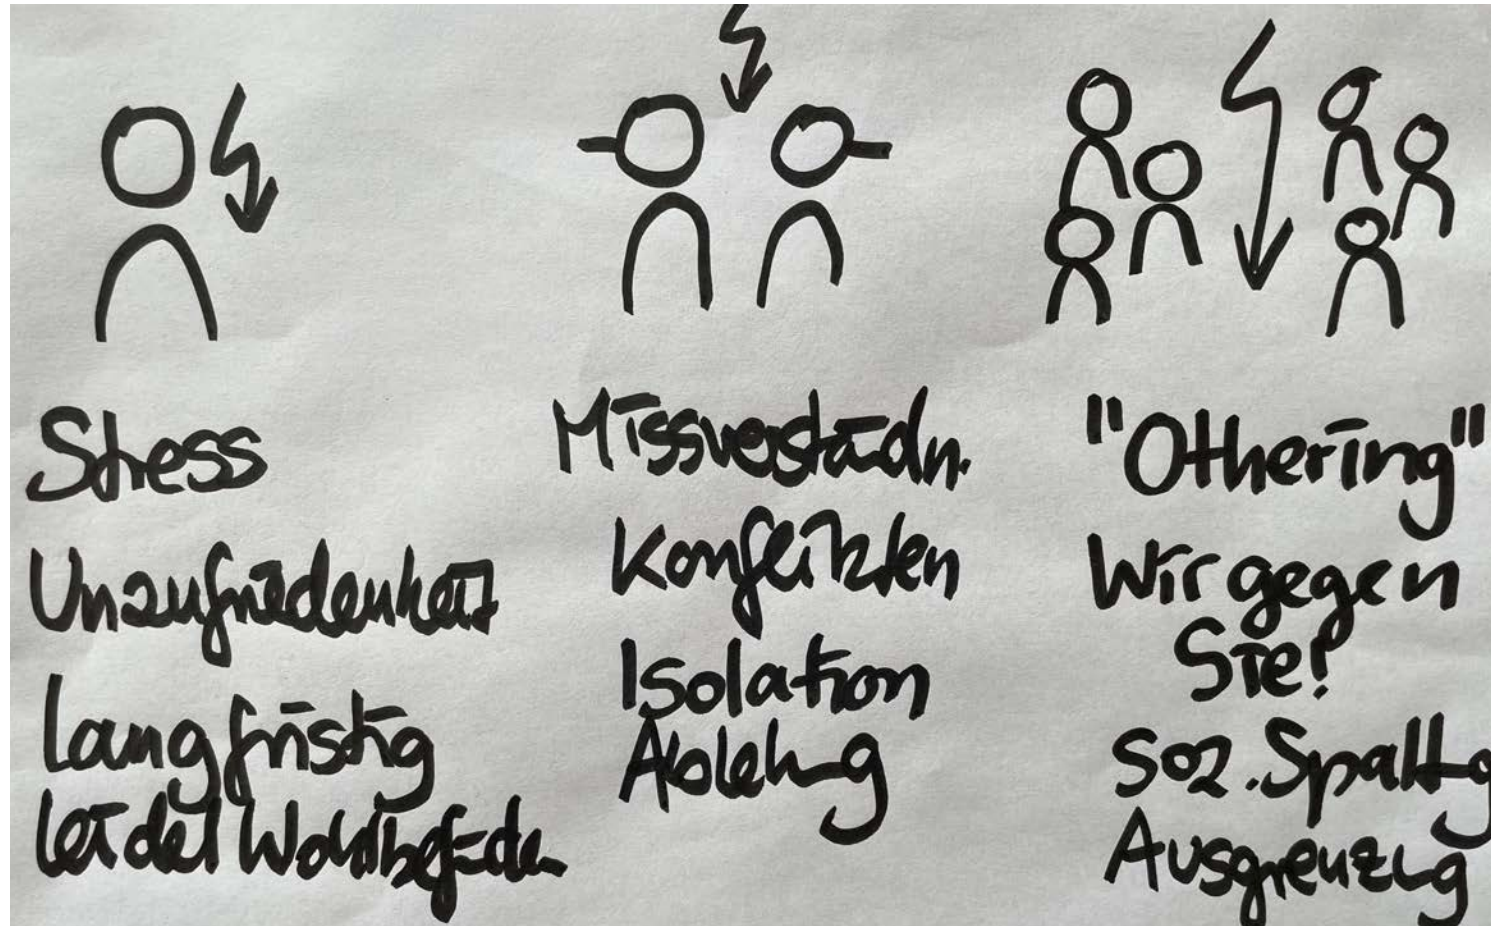 Stress
Unzufriedenheit
Langfristig
leidet Wohlbefinden
Missverständn.
Konflikten
Isolation
Ablehng
"Othering"
Wir gegen
Sie!
Soz. Spaltg
Ausgrenzug